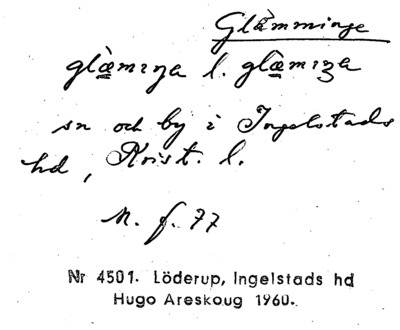 Glämminge
glæ̀mıŋa l. glæmıŋa
sn och by i Ingelstads
hd, Krist. l.
M. f. 77
Nr 4501. Löderup, Ingelstads hd
Hugo Areskoug 1960.